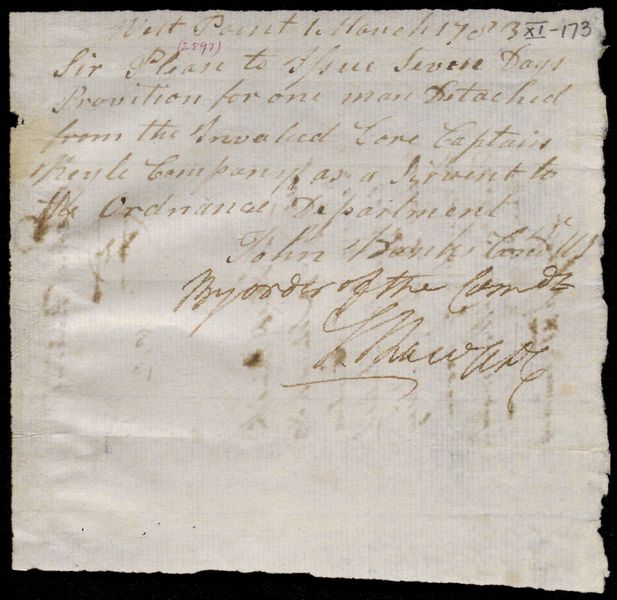 West Point 1 March 1783 XI-173
(2597)
Sir Pleas to Issue Seven Days
Provition for one man Detached
from the Invalied Core Captain
Company as a Sirvent to
the Ordnance Department
John Banks Cond
By order of the Comdt